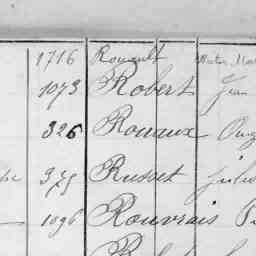 1716 Rouault
1073 Robert Jean
326 Rouaux
375 Russet Jules
1096 Rouvrais